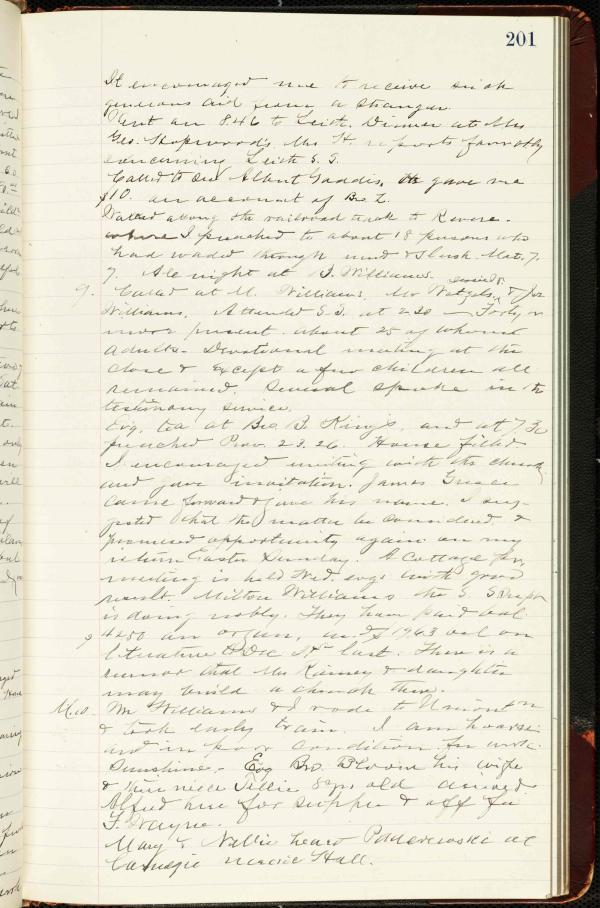 201
It encouraged me to receive such
generous aid from a stranger.
Went on 8.46 to Leith. Dinner at Mrs
Geo. Hopwood's. Mrs H. reports favorably
concerning Leith S. S.
Called to see Albert Gaddis, He gave me
$10. on account of
Walked along the railroad track to Revere.
where I preached to about 18 persons who
had waded through mud & slush. Mat. 7.
7. All night at J. Williams.
9. Called at M. Williams, Mr & Jos
Williams. Attended S. S. at 2 30 — Forty or
more present. about 25 of whom
adults. Devotional meeting at the
close & Except a few children all
remained. Several spoke in the
testimony service.
Evg. tea at Bro B. King's. and at 7.30
preached Prov. 23.26. House filled
I encouraged uniting with the church
and gave invitation. James
came forward & gave his name. I sug-
gested that the matter be considered &
promised opportunity again on my
return Easter Sunday. A Cottage Pr.
meeting is held Wed. evgs with good
result. Milton Williams the S. S. Supt
is doing nobly. They have paid bal
42 50 on organ, and $17.63 bal on
literature to Dec last. There is a
rumor that Mrs Rainey & daughter
may build a church there.
M. 10. Mr Williams & I rode to Uniontn
& took early train. I am hoarse
and in poor condition for work.
Sunshine. Evg Bro. Bloom his wife
& niece Tillie 8 yrs old
me for supper & off for
F. Wayne.
Mary & Nellie heard Paderewski at
Carnegie Music Hall.